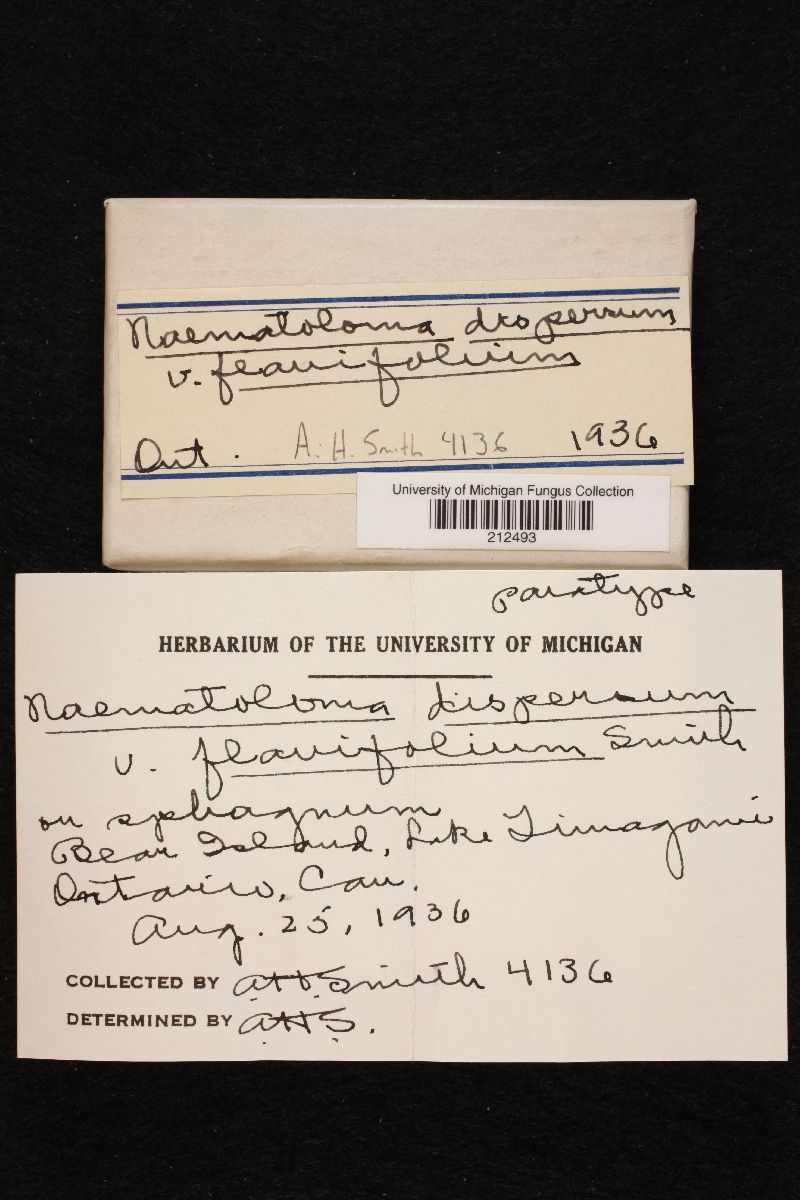 Naematoloma dispersum
v. flavifolium
Ont. A. H. Smith 4136 1936
University of Michigan Fungus Collection
212493
paratype
HERBARIUM OF THE UNIVERSITY OF MICHIGAN
Naematoloma dispersum
v. flavifolium Smith
on sphagnum
Bear Island, Lake Timagami
Ontario, Can.
Aug. 25, 1936
COLLECTED BY A.H.Smith 4136
DETERMINED BY A.H.S.